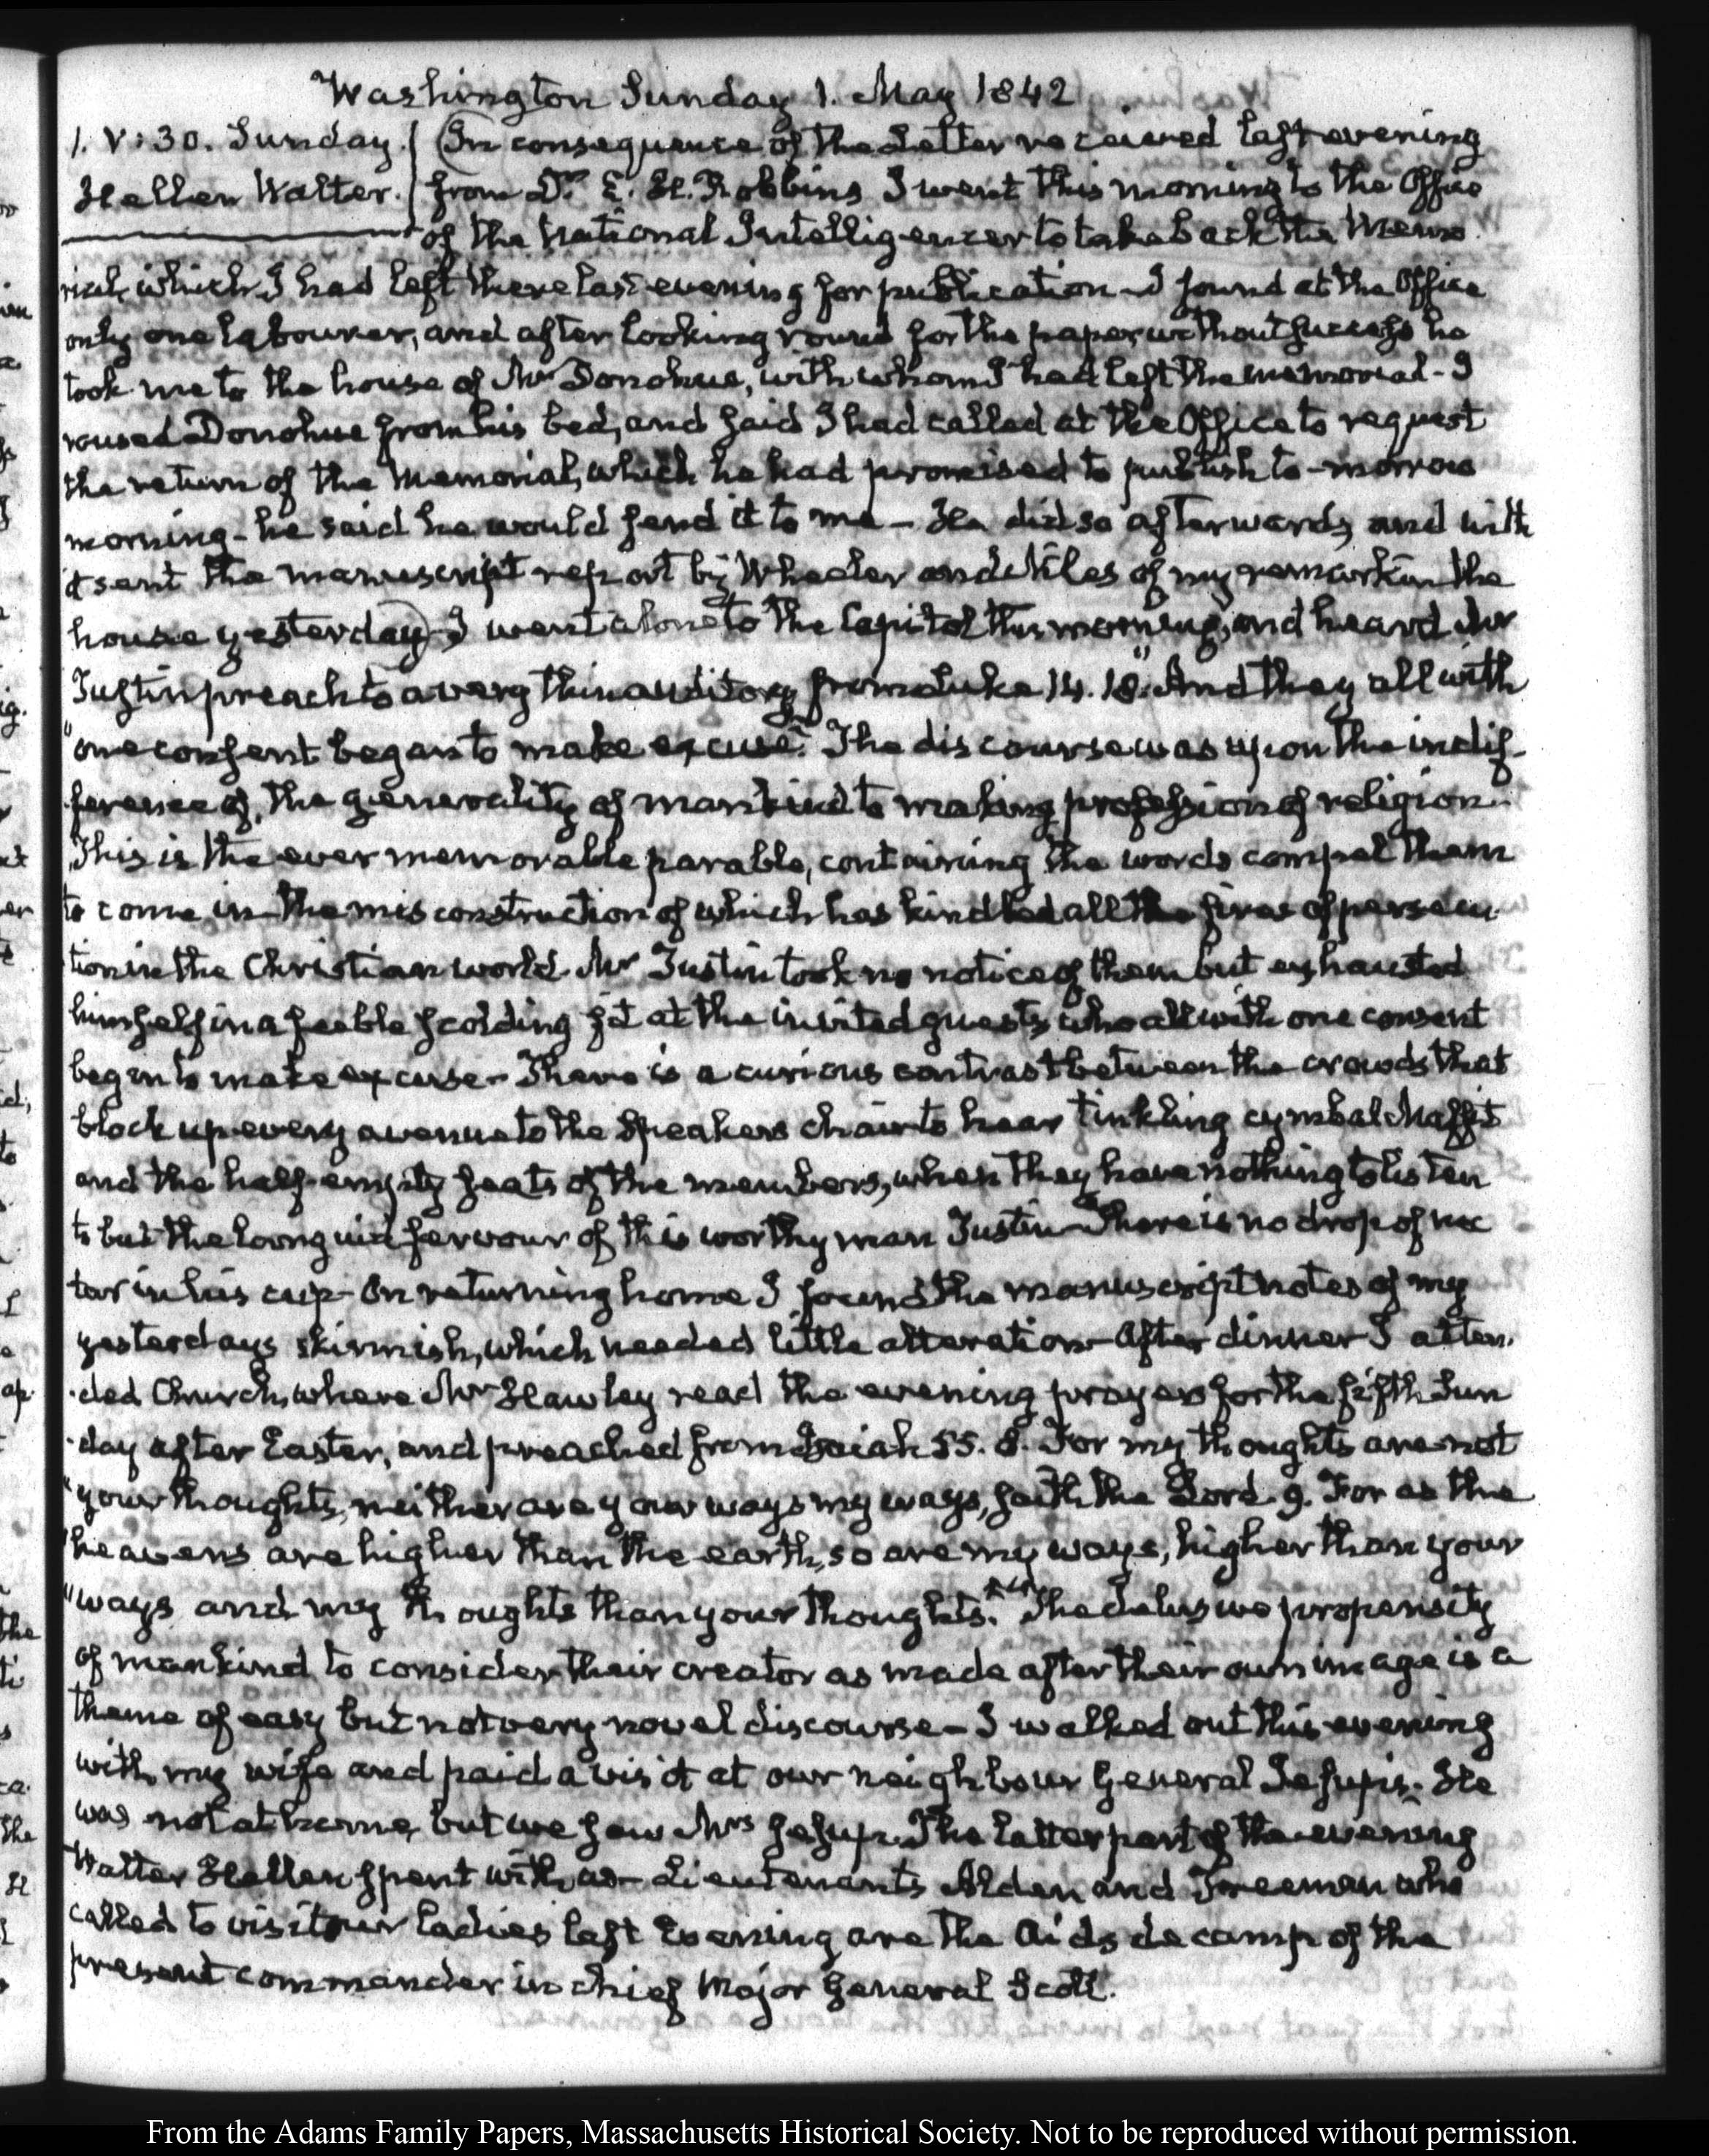 Washington Sunday 1. May 1842
1. V:30. Sunday.
Hellen Walter.
In consequence of the Letter received last evening
from Dr. E. H. Robbins I went this morning to the Office
of the National Intelligencer to take back the Memo
rial, which I had left there last evening for publication - I found at the Office
only one labourer, and after looking round for the paper without success he
took me to the house of Mr Donohue, with whom I had left the memorial - I
roused Donohue from his bed, and said I had called at the Office to request
the return of the Memorial, which he had promised to publish to-morrow
morning - he said he would send it to me - He did so afterwards, and with
it sent the manuscript report by Wheeler and Niles of my remarks in the
house yesterday) I went alone to the Capitol this morning, and heard Mr
Tustin preach to a very thin auditory from Luke 14. 18. "And they all with
"one consent began to make excuse." The discourse was upon the indif-
ference of, the generality of mankind to making profession of religion.
This is the ever memorable parable, containing the words compel them
to come in - the misconstruction of which has kindled all the fires of persecu
tion in the Christian world. Mr Tustin took no notice of them but exhausted
himself in a feeble scolding fit at the invited guests, who all with one consent
began to make excuse - There is a curious contrast between the crowds that
block up every avenue to the Speakers chair to hear tinkling cymbal Maffit
and the half-empty seats of the members, when they have nothing to listen
to but the languid fervour of this worthy man Tustin - There is no drop of nec
tar in his cup - On returning home I found the manuscript notes of my
yesterdays skirmish, which needed little alteration - After dinner I atten-
-ded Church, where Mr Hawley read the evening prayers for the fifth Sun
-day after Easter, and preached from Isaiah 55. 8. For my thoughts are not
"your thoughts, neither are your ways my ways, saith the Lord. 9. For as the
"heavens are higher than the earth, so are my ways, higher than your
"ways and my thoughts than your thoughts." The delusive propensity
of mankind to consider their creator as made after their own image is a
theme of easy but not very novel discourse - I walked out this evening
with my wife and paid a visit at our neighbour General Jesup's. He
was not at home, but we saw Mrs Jesup. The latter part of the evening
Walter Hellen spent with us - Lieutenants Alden and Freeman who
called to visit our ladies last Evening are the Aids de camp of the
present commander in chief Major General Scott.
From the Adams Family Papers, Massachusetts Historical Society. Not to be reproduced without permission.